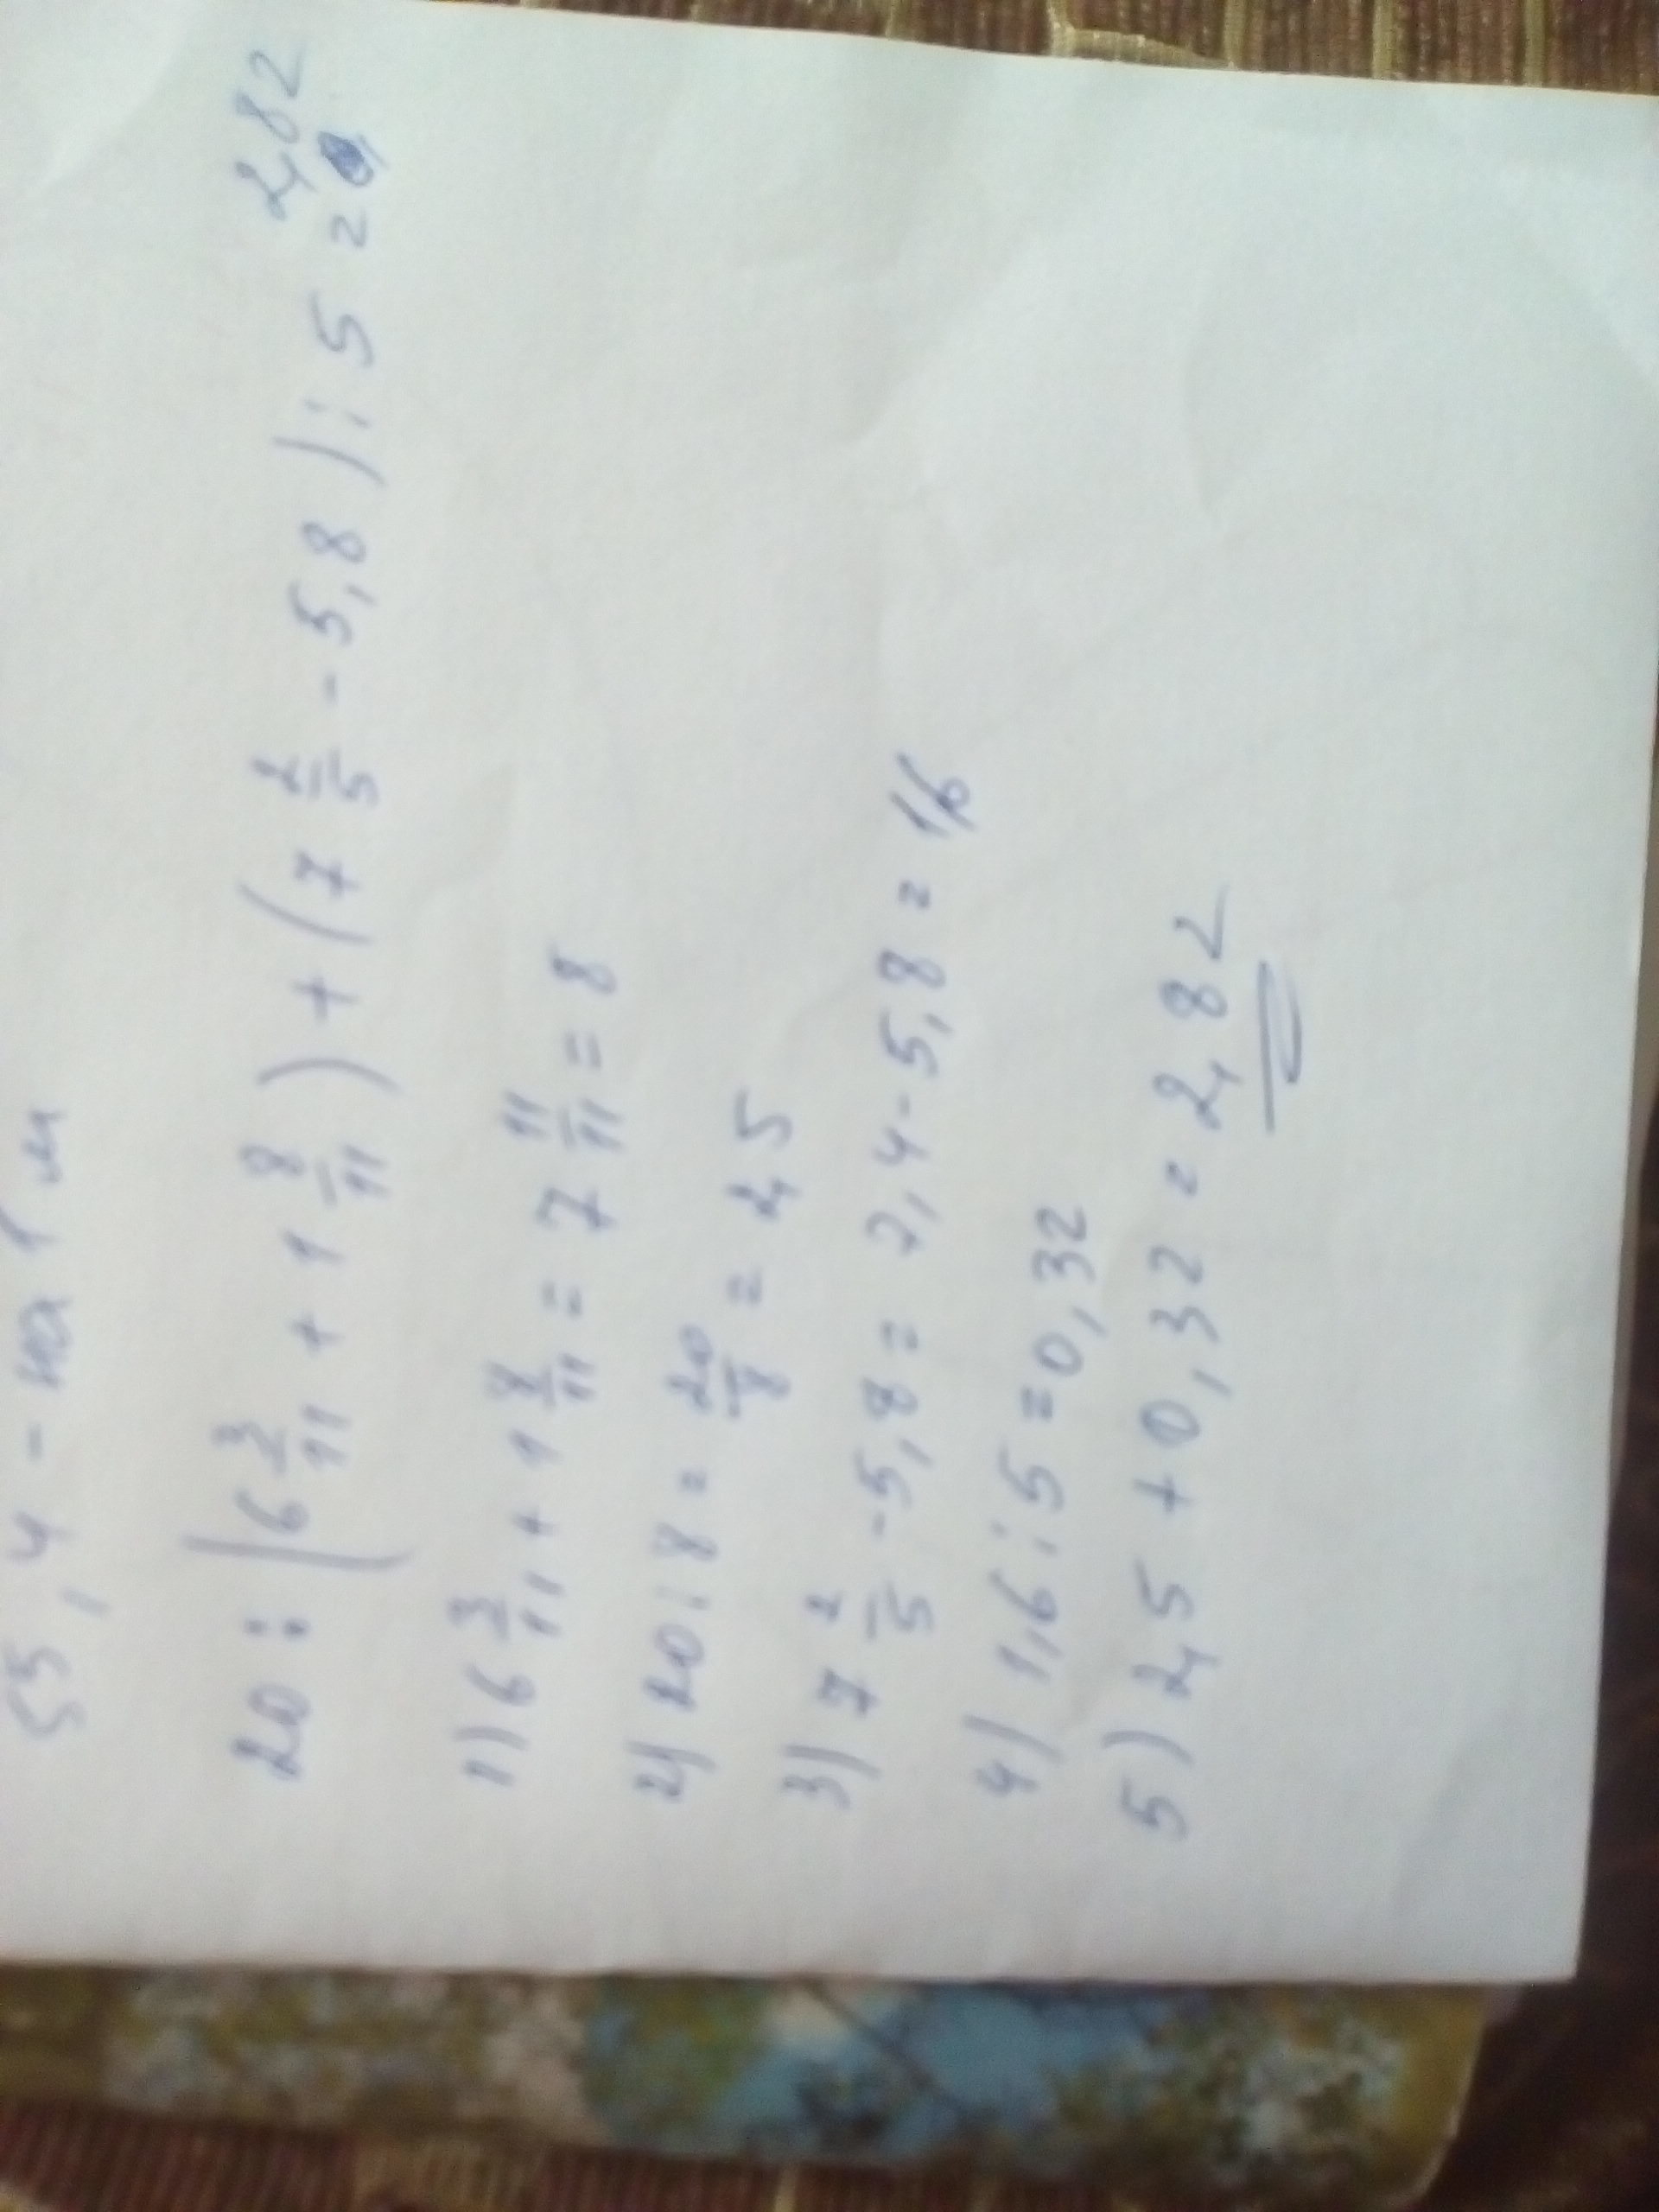 55,4 - на 1 м
20 : (6 3/11 + 1 8/11) + (7 2/5 - 5,8) : 5 = 2,82
1) 6 3/11 + 1 8/11 = 7 11/11 = 8
2) 20 : 8 = 20/8 = 2,5
3) 7 2/5 - 5,8 = 7,4 - 5,8 = 1,6
4) 1,6 : 5 = 0,32
5) 2,5 + 0,32 = 2,82